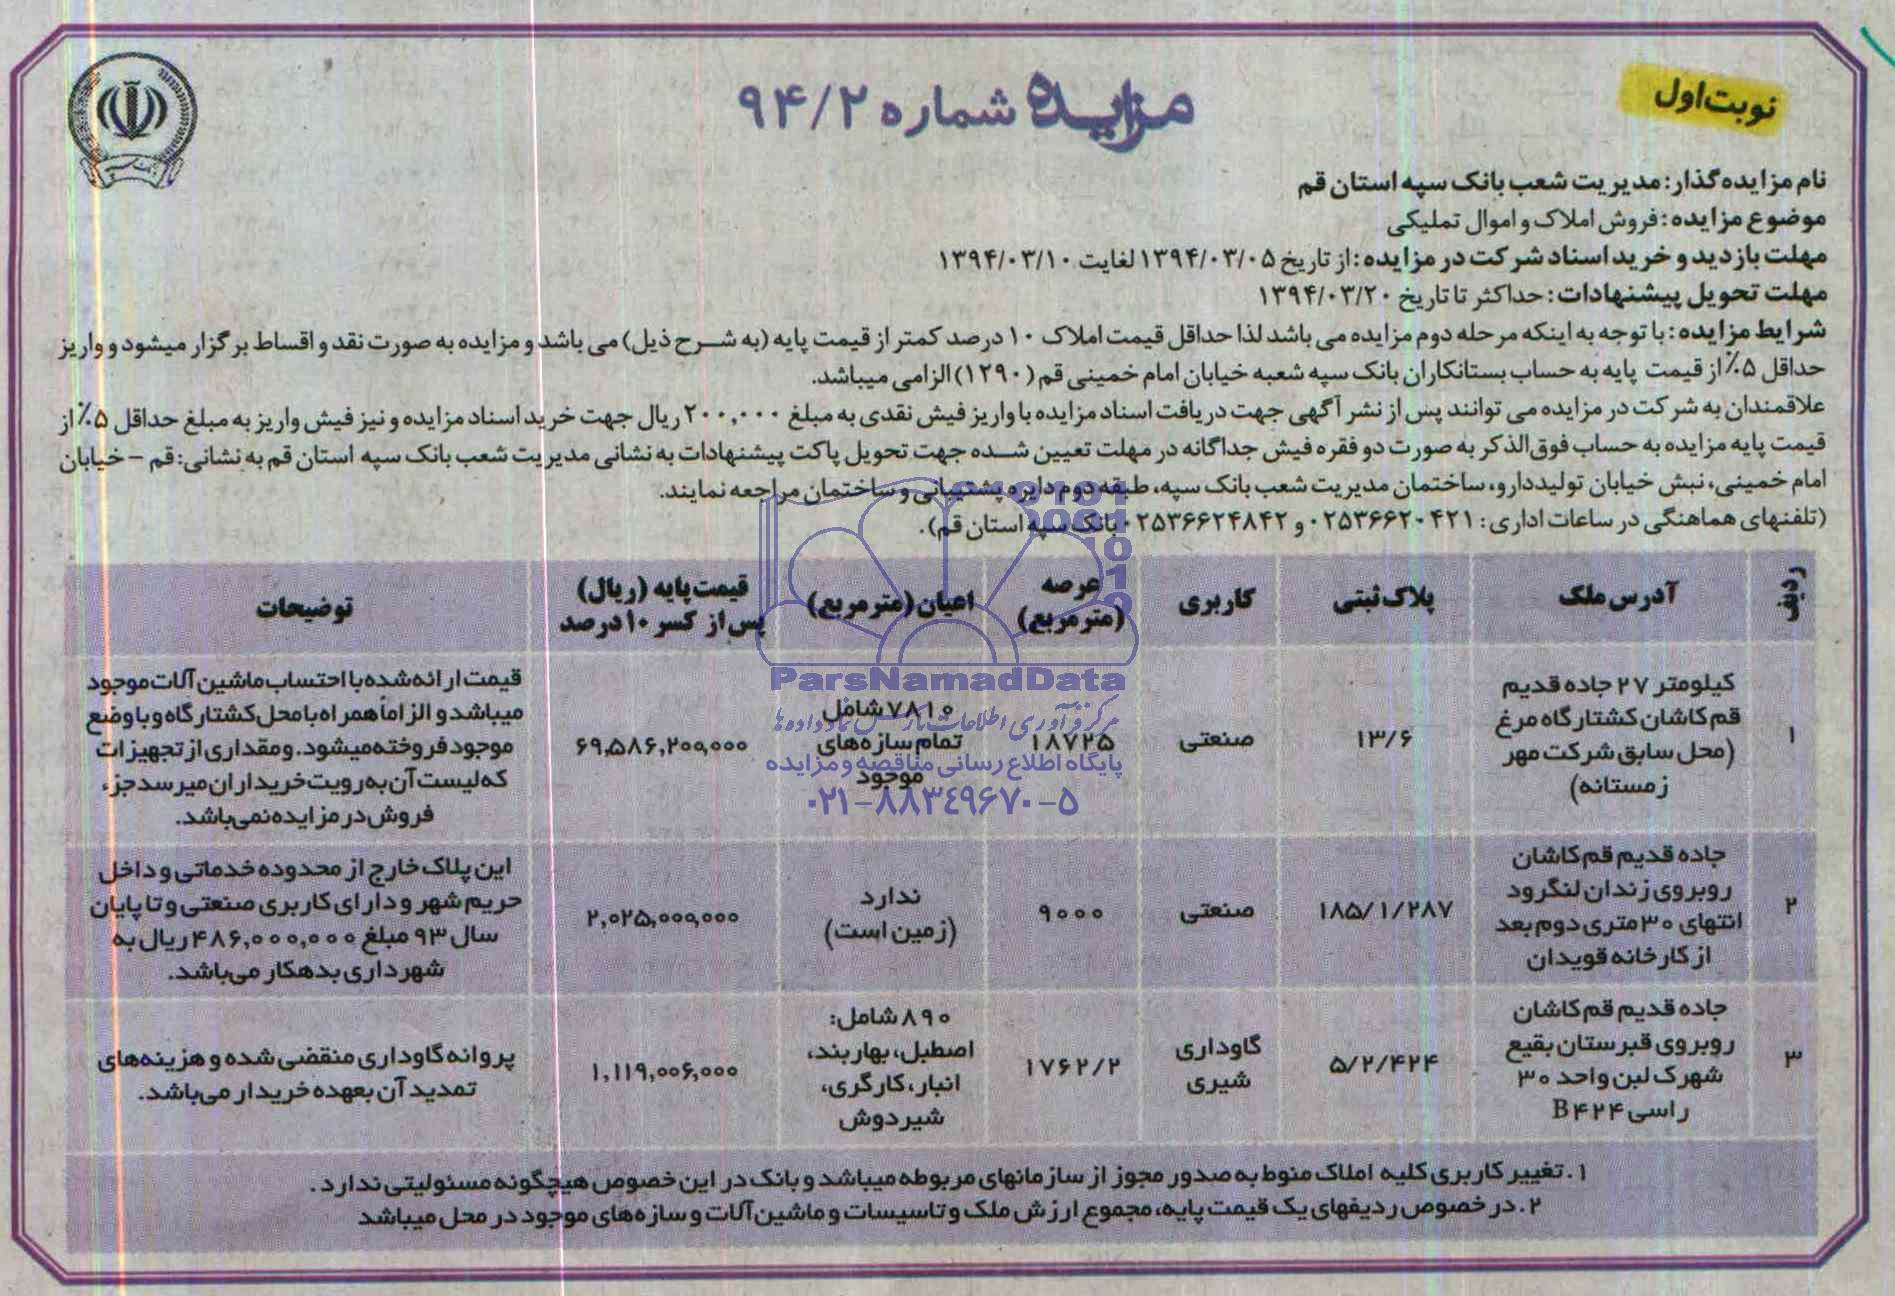 نوبت اول
مزایده شماره ۹۴/۲
نام مزایده‌گذار: مدیریت شعب بانک سپه استان قم
موضوع مزایده: فروش املاک و اموال تملیکی
مهلت بازدید و خرید اسناد شرکت در مزایده: از تاریخ ۱۳۹۴/۰۳/۰۵ لغایت ۱۳۹۴/۰۳/۱۰
مهلت تحویل پیشنهادات: حداکثر تا تاریخ ۱۳۹۴/۰۳/۲۰
شرایط مزایده: با توجه به اینکه مرحله دوم مزایده می باشد لذا حداقل قیمت املاک ۱۰ درصد کمتر از قیمت پایه (به شرح ذیل) می باشد و مزایده به صورت نقد و اقساط برگزار میشود و واریز
حداقل ۵٪ از قیمت پایه به حساب بستانکاران بانک سپه شعبه خیابان امام خمینی قم (۱۲۹۰) الزامی میباشد.
علاقمندان به شرکت در مزایده می توانند پس از نشر آگهی جهت دریافت اسناد مزایده با واریز فیش نقدی به مبلغ ۲۰۰,۰۰۰ ریال جهت خرید اسناد مزایده و نیز فیش واریز به مبلغ حداقل ۵٪ از
قیمت پایه مزایده به حساب فوق‌الذکر به صورت دو فقره فیش جداگانه در مهلت تعیین شده جهت تحویل پاکت پیشنهادات به نشانی مدیریت شعب بانک سپه استان قم به نشانی: قم – خیابان
امام خمینی، نبش خیابان تولیددارو، ساختمان مدیریت شعب بانک سپه، طبقه دوم دایره پشتیبانی و ساختمان مراجعه نمایند.
(تلفنهای هماهنگی در ساعات اداری: ۰۲۵۳۶۶۲۰۴۲۱ و ۰۲۵۳۶۶۲۴۸۴۲ بانک سپه استان قم).
ردیف آدرس ملک پلاک ثبتی کاربری عرصه (مترمربع) اعیان (مترمربع) قیمت پایه (ریال) پس از کسر ۱۰ درصد توضیحات
۱
کیلومتر ۲۷ جاده قدیم
قم کاشان کشتارگاه مرغ
(محل سابق شرکت مهر
زمستانه)
۱۳/۶
صنعتی
۱۸۷۲۵
۷۸۱۰ شامل
تمام سازه‌های
موجود
۶۹,۵۸۶,۲۰۰,۰۰۰
قیمت ارائه شده با احتساب ماشین آلات موجود
میباشد و الزاماً همراه با محل کشتارگاه و با وضع
موجود فروخته میشود. و مقداری از تجهیزات
که لیست آن به رویت خریداران میرسد جزء
فروش در مزایده نمی‌باشد.
۲
جاده قدیم قم کاشان
روبروی زندان لنگرود
انتهای ۳۰ متری دوم بعد
از کارخانه قویدان
۱۸۵/۱/۲۸۷
صنعتی
۹۰۰۰
ندارد
(زمین است)
۲,۰۲۵,۰۰۰,۰۰۰
این پلاک خارج از محدوده خدماتی و داخل
حریم شهر و دارای کاربری صنعتی و تا پایان
سال ۹۳ مبلغ ۴۸۶,۰۰۰,۰۰۰ ریال به
شهرداری بدهکار می‌باشد.
۳
جاده قدیم قم کاشان
روبروی قبرستان بقیع
شهرک لبن واحد ۳۰
راسی B۴۲۴
۵/۲/۴۲۴
گاوداری
شیری
۱۷۶۲/۲
۸۹۰ شامل:
اصطبل، بهاربند،
انبار، کارگری،
شیردوش
۱,۱۱۹,۰۰۶,۰۰۰
پروانه گاوداری منقضی شده و هزینه‌های
تمدید آن بعهده خریدار می‌باشد.
۱. تغییر کاربری کلیه املاک منوط به صدور مجوز از سازمانهای مربوطه میباشد و بانک در این خصوص هیچگونه مسئولیتی ندارد.
۲. در خصوص ردیفهای یک قیمت پایه، مجموع ارزش ملک و تاسیسات و ماشین‌آلات و سازه‌های موجود در محل میباشد
ParsNamadData
مرکز فرآوری اطلاعات پارس نماد داده‌ها
پایگاه اطلاع رسانی مناقصه و مزایده
۰۲۱-۸۸۳۴۹۶۷۰-۵